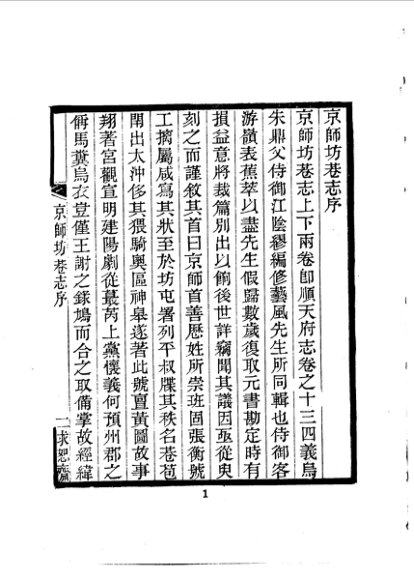 京師坊巷志序
京師坊巷志上下兩卷卽順天府志卷之十三四義烏
朱鼎父侍御江陰繆編修藝風先生所同輯也侍御客
游嶺表蕉萃以盡先生假歸數歲復取元書勘定時有
損益意將裁篇別出以餉後世詳竊聞其議因亟從臾
刻之而謹敘其首曰京師首善歷姓所崇班固張衡號
工摛屬咸寫其狀至於坊屯署列平叔牒其秩名巷苞
閈出太沖侈其猥騎奧區神皋遂著此號亶黃圖故事
翔著宮觀宣明建陽劇從蕞芮上黨懷義何預州郡之
偁馬糞烏衣豈僅王謝之錄鳩而合之取備掌故經緯
京師坊巷志序
一
求恕齋
1